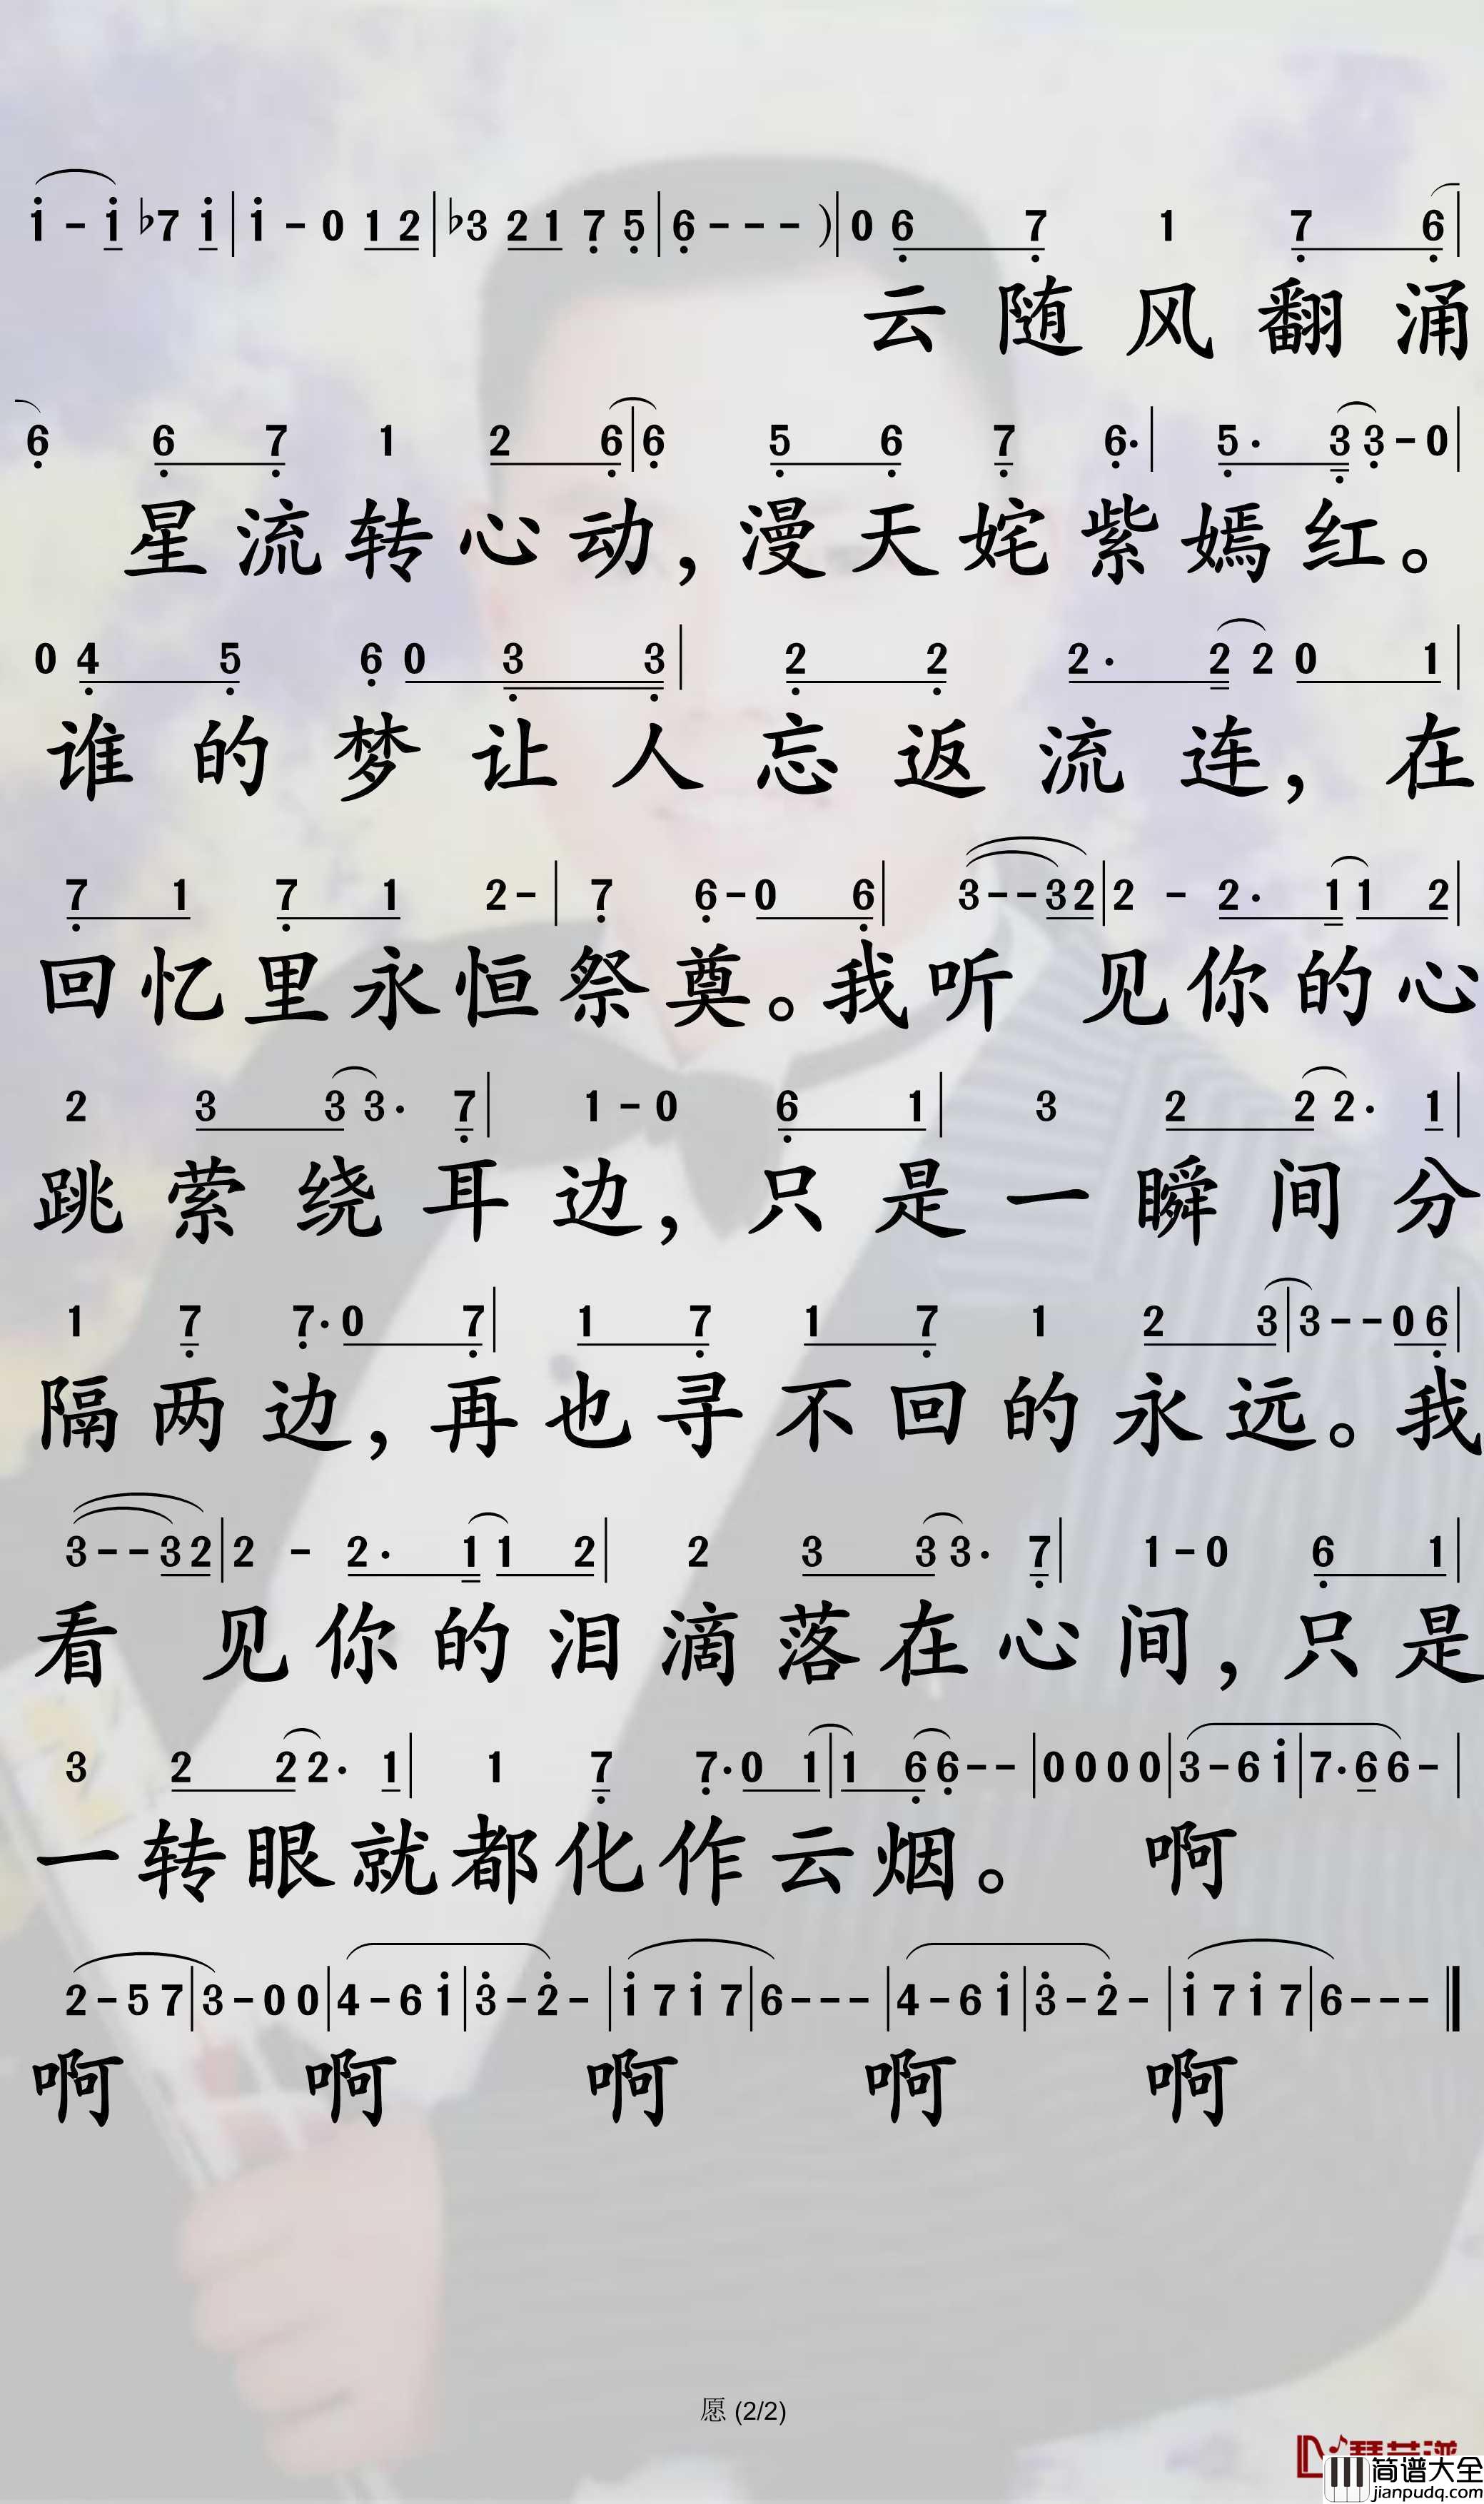 i - i ♭7 i | i - 0 1 2 | ♭3 2 1 7 5 | 6 - - - ) | 0 6 7 1 7 6 |
云 随 风 翻 涌
6 6 7 1 2 6 | 6 5 6 7 6· | 5· 3 3 - 0 |
星 流 转 心 动， 漫 天 姹 紫 嫣 红。
0 4 5 6 0 3 3 | 2 2 2· 2 2 0 1 |
谁 的 梦 让 人 忘 返 流 连， 在
7 1 7 1 2 - | 7 6 - 0 6 | 3 - - 3 2 | 2 - 2· 1 1 2 |
回 忆 里 永 恒 祭 奠。 我 听 见 你 的 心
2 3 3 3· 7 | 1 - 0 6 1 | 3 2 2 2· 1 |
跳 萦 绕 耳 边， 只 是 一 瞬 间 分
1 7 7· 0 7 | 1 7 1 7 1 2 3 | 3 - - 0 6 |
隔 两 边， 再 也 寻 不 回 的 永 远。 我
3 - - 3 2 | 2 - 2· 1 1 2 | 2 3 3 3· 7 | 1 - 0 6 1 |
看 见 你 的 泪 滴 落 在 心 间， 只 是
3 2 2 2· 1 | 1 7 7· 0 1 | 1 6 6 - - | 0 0 0 0 | 3 - 6 i | 7· 6 6 - |
一 转 眼 就 都 化 作 云 烟。 啊
2 - 5 7 | 3 - 0 0 | 4 - 6 i | 3 - 2 - | i 7 i 7 | 6 - - - | 4 - 6 i | 3 - 2 - | i 7 i 7 | 6 - - - ‖
啊 啊 啊 啊 啊
愿 (2/2)
简谱大全
jianpudq.com